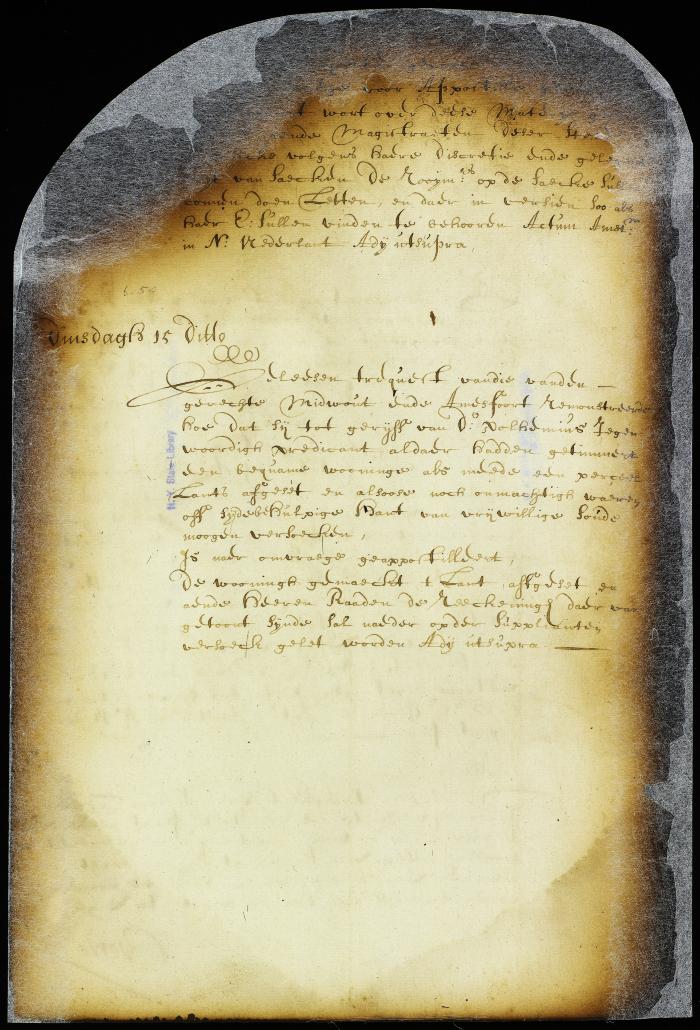 voor Appostille
t wort over deese Mate
ende Magistraeten deser Ste
volgens haere Discretie ende gele
van saecken De Rooijm:rs op de saecke sul
connen doen Letten, en daer in versien soo als
haer E: sullen vinden te behooren Actum Amst:m
in N: Nederlant Ady utsupra,
6.54
Dinsdagh 15 Ditto
Geleesen t request vandie vanden
gerechte Midwout ende Amesfoort Remonstreerde
hoe dat sy tot geryff van D:o Polhemius Jegen
woordigh predicant aldaer hadden getimmert
een bequame wooninge als meede een perceel
Lants affgeset en alsoose noch onmachtigh waeren
off sydebehulpige Hant van vrywillige soude
moogen versoecken,
Is naer omvraege geappostilleert,
De wooningh gemaeckt t Lant affgeset en
aende Heeren Raaden de Reeckeningh daer van
getoont synde sal naeder op der supplianten
versoeck gelet worden Ady utsupra
N.Y. State Library